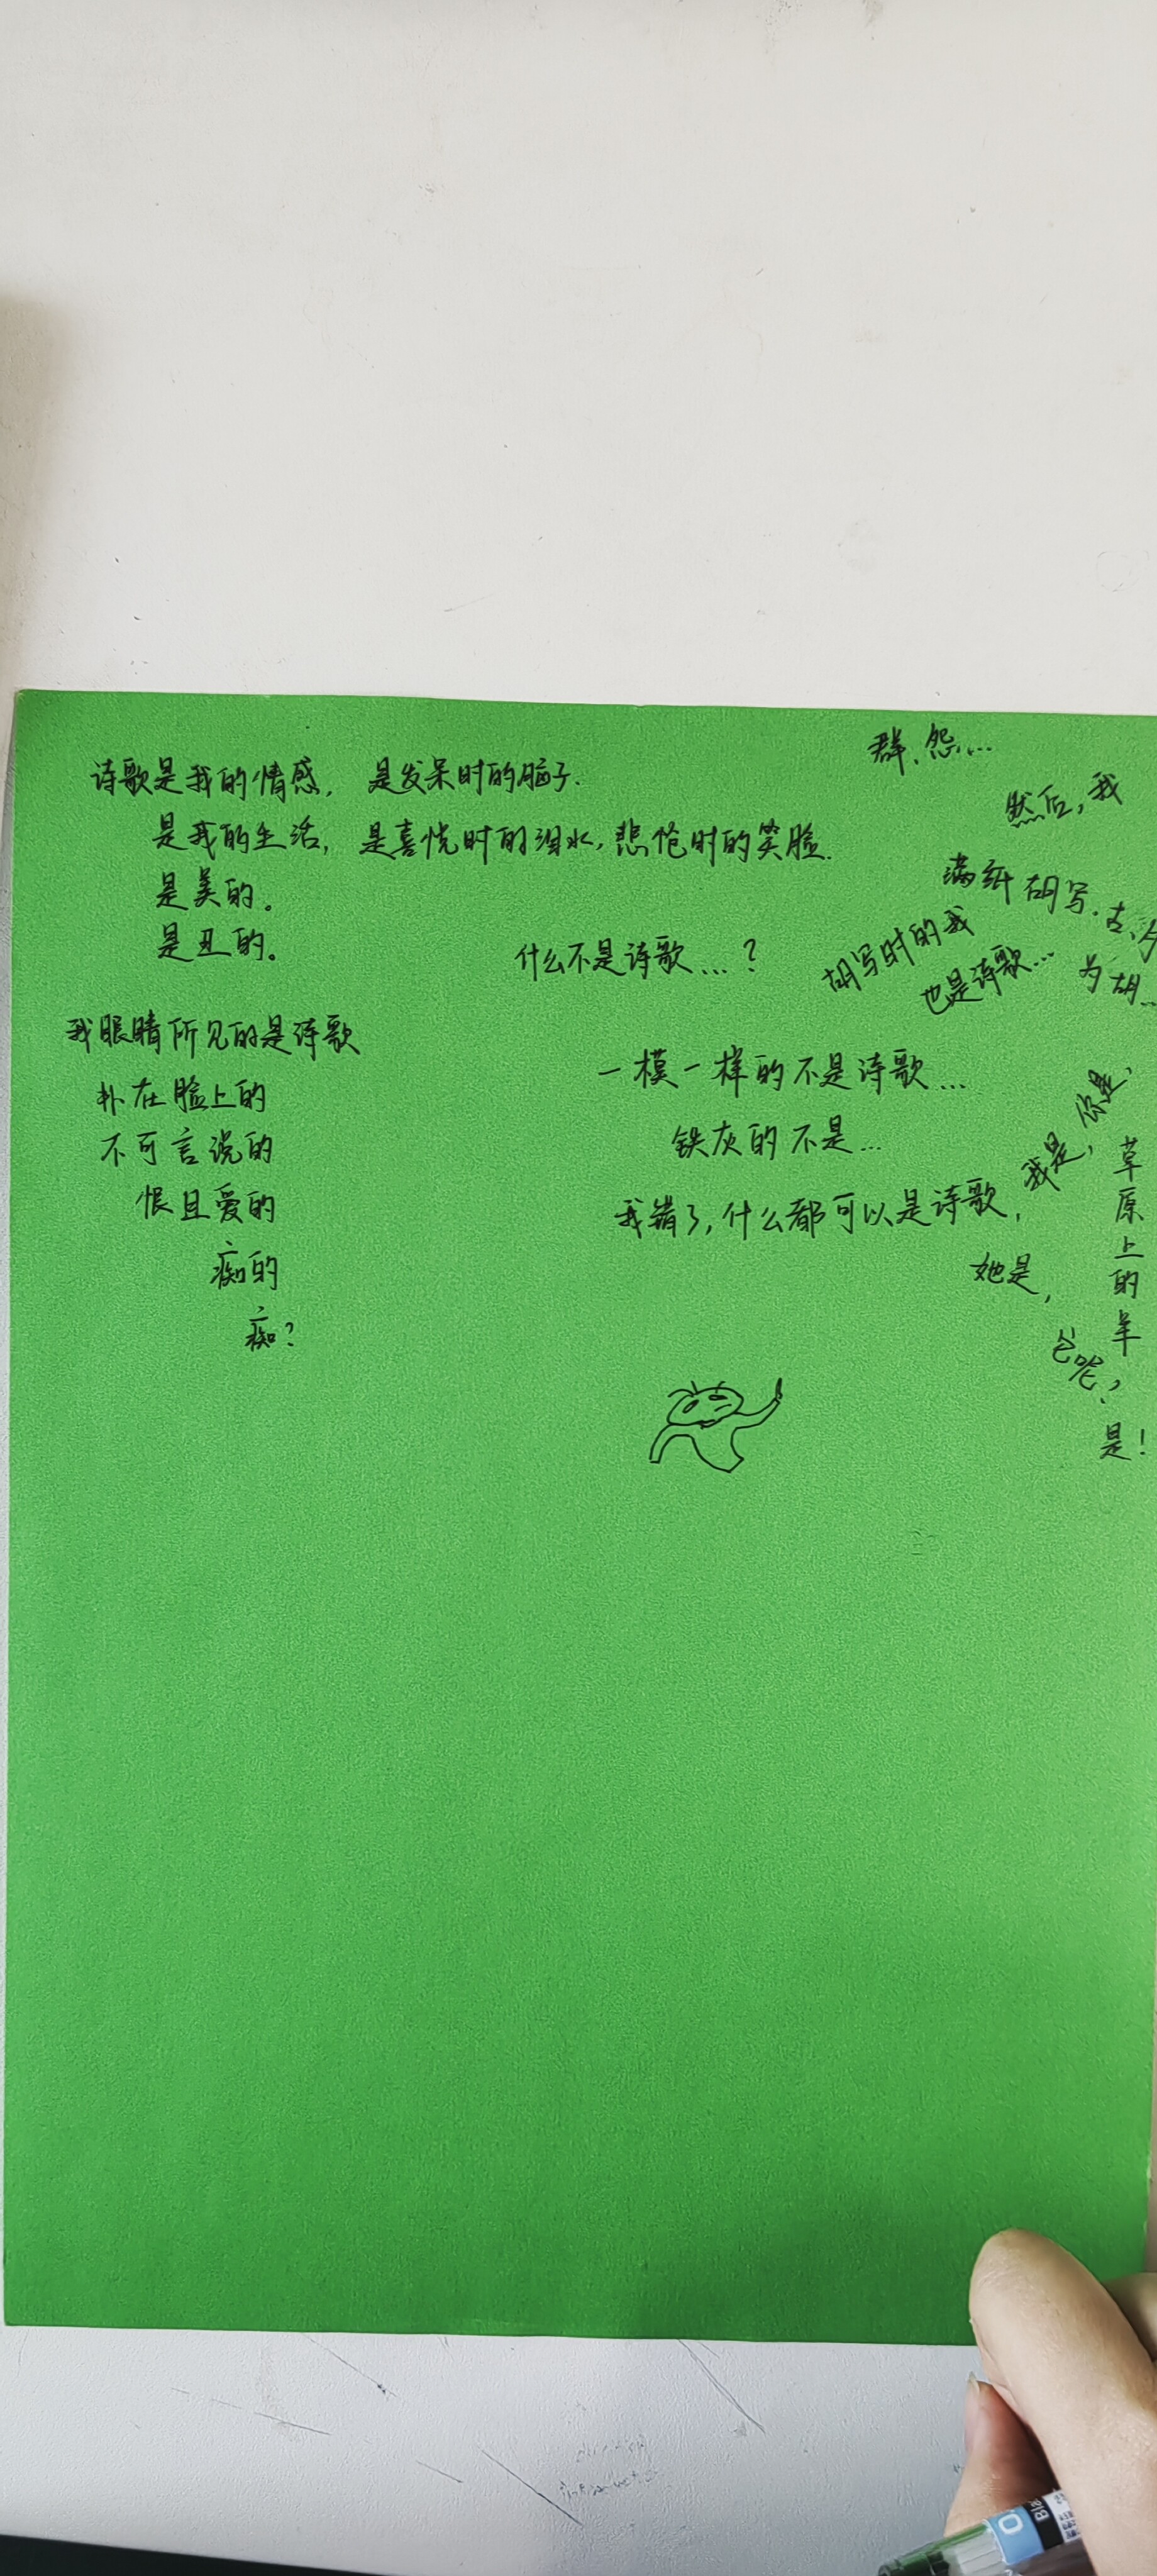 诗歌是我的情感, 是发呆时的脑子.
是我的生活, 是喜悦时的泪水, 悲怆时的笑脸.
是美的。
是丑的。
我眼睛所见的是诗歌
扑在脸上的
不可言说的
恨且爱的
痴的
痴?
什么不是诗歌...?
一模一样的不是诗歌...
铁灰的不是...
我错了,什么都可以是诗歌,
我是,
你是,
她是,
它呢?
是!
草原上的羊
群、怨、...
然后,我
满纸胡写.
古、今
为胡...
胡写时的我
也是诗歌...